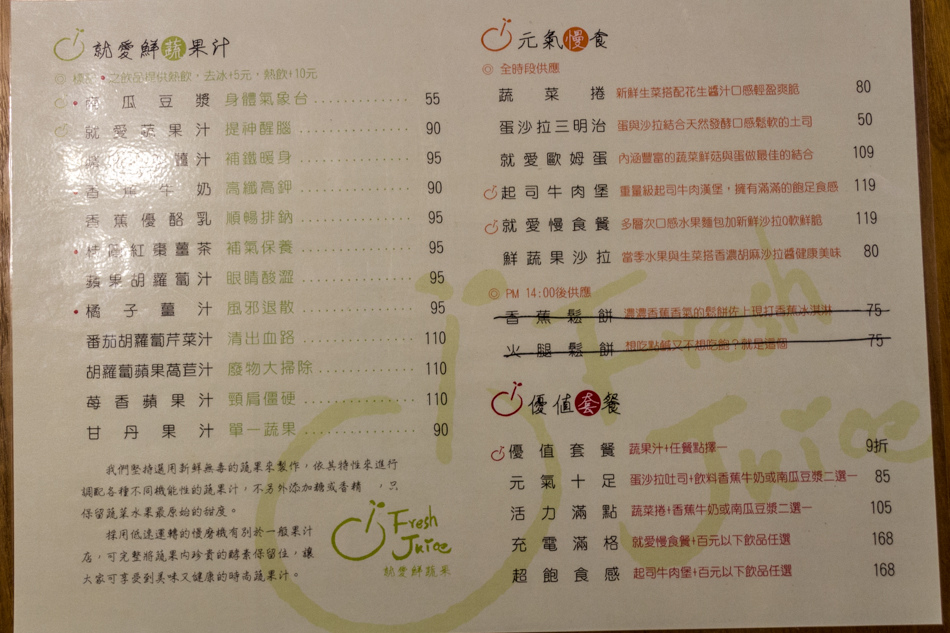 就愛鮮蔬果汁
之飲品提供熱飲，去冰+5元，熱飲+10元
南瓜豆漿 身體氣象台 55
就愛蔬果汁 提神醒腦 90
薑汁 補鐵暖身 95
香蕉牛奶 高纖高鉀 90
香蕉優酪乳 順暢排鈉 95
桂圓紅棗薑茶 補氣保養 95
蘋果胡蘿蔔汁 眼睛酸澀 95
橘子薑汁 風邪退散 95
番茄胡蘿蔔芹菜汁 清出血路 110
胡蘿蔔蘋果萵苣汁 廢物大掃除 110
莓香蘋果汁 頸肩僵硬 110
甘丹果汁 單一蔬果 90
我們堅持選用新鮮無毒的蔬果來製作，依其特性來進行
調配各種不同機能性的蔬果汁，不另外添加糖或香精，只
保留蔬菜水果最原始的甜度。
採用低速運轉的慢磨機有別於一般果汁
店，可完整將蔬果內珍貴的酵素保留住，讓
大家可享受到美味又健康的時尚蔬果汁。
Fresh
Juice
就愛鮮蔬果
元氣慢食
◎ 全時段供應
蔬菜捲 新鮮生菜搭配花生醬汁口感輕盈爽脆 80
蛋沙拉三明治 蛋與沙拉結合天然發酵口感鬆軟的土司 50
就愛歐姆蛋 內涵豐富的蔬菜鮮菇與蛋做最佳的結合 109
起司牛肉堡 重量級起司牛肉漢堡，擁有滿滿的飽足食感 119
就愛慢食餐 多層次口感水果麵包加新鮮沙拉Q軟鮮脆 119
鮮蔬果沙拉 當季水果與生菜搭香濃胡麻沙拉醬健康美味 80
◎ PM 14:00後供應
香蕉鬆餅 濃濃香蕉香氣的鬆餅佐上現打香蕉冰淇淋 75
火腿鬆餅 想吃點鹹又不想吃飽？就是這個 75
優值套餐
優值套餐 蔬果汁+任餐點擇一 9折
元氣十足 蛋沙拉吐司+飲料香蕉牛奶或南瓜豆漿二選一 85
活力滿點 蔬菜捲+香蕉牛奶或南瓜豆漿二選一 105
充電滿格 就愛慢食餐+百元以下飲品任選 168
超飽食感 起司牛肉堡+百元以下飲品任選 168
Fresh
Juice